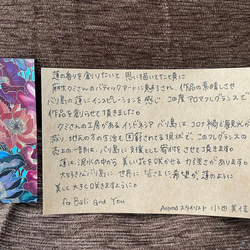 蓮の香りを創りたいと思い描いてた頃に
麻生クミさんのバティックアートに魅せられ、作品の素晴しさ
バリ島の蓮にインスピレーションを感じ、この度アロマフレグランスで
作品を創らせて頂きました。
クミさんの工房があるインドネシア バリ島は、コロナ禍で観光が
減り、地元の方の生活も困窮される現状で、このフレグランスの
売上の一割は、バリ島に支援として寄付をさせて頂きます。
蓮は泥水の中から美しい花を咲かせる力強さがあります。
大好きなバリ島に世界に皆さまに希望が蓮のように
美しく大きく咲きますように。
for Bali and You
Aroma スタイリスト 小田 美佳